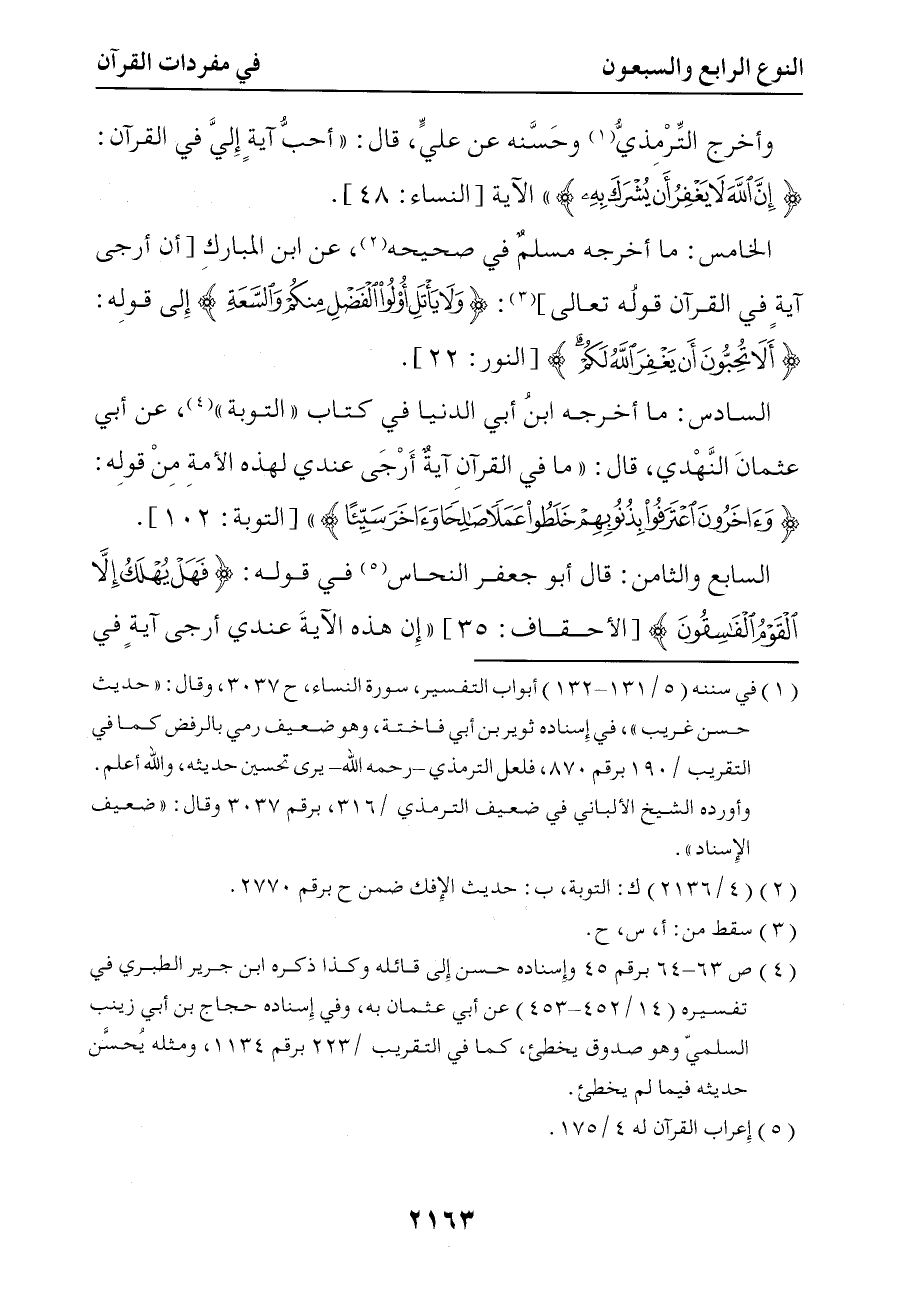 النوع الرابع والسبعون في مفردات القرآن
وأخرج التِّرْمذيُّ(١) وحَسَّنه عن عليٍّ، قال: «أحبُّ آيةٍ إِليَّ في القرآن:
﴿ إِنَّ ٱللَّهَ لَا يَغْفِرُ أَن يُشْرَكَ بِهِۦ ﴾» الآية [النساء: ٤٨].
الخامس: ما أخرجه مسلمٌ في صحيحه(٢)، عن ابن المبارك [أن أرجى
آيةٍ في القرآن قولُه تعالى](٣): ﴿ وَلَا يَأْتَلِ أُوْلُواْ ٱلْفَضْلِ مِنكُمْ وَٱلسَّعَةِ ﴾ إلى قوله:
﴿ أَلَا تُحِبُّونَ أَن يَغْفِرَ ٱللَّهُ لَكُمْ ۗ ﴾ [النور: ٢٢].
السادس: ما أخرجه ابنُ أبي الدنيا في كتاب «التوبة»(٤)، عن أبي
عثمانَ النَّهْدي، قال: «ما في القرآن آيةٌ أَرْجَى عندي لهذه الأمةِ مِنْ قوله:
﴿ وَءَاخَرُونَ ٱعْتَرَفُواْ بِذُنُوبِهِمْ خَلَطُواْ عَمَلًا صَٰلِحًا وَءَاخَرَ سَيِّئًا ﴾» [التوبة: ١٠٢].
السابع والثامن: قال أبو جعفر النحاس(٥) في قوله: ﴿ فَهَلْ يُهْلَكُ إِلَّا
ٱلْقَوْمُ ٱلْفَٰسِقُونَ ﴾ [الأحقاف: ٣٥] «إن هذه الآيةَ عندي أرجى آيةٍ في
(١) في سننه (٥/ ١٣١-١٣٢) أبواب التفسير، سورة النساء، ح ٣٠٣٧، وقال: «حديث
حسن غريب»، في إسناده ثوير بن أبي فاختة، وهو ضعيف رمي بالرفض كما في
التقريب / ١٩٠ برقم ٨٧٠، فلعل الترمذي -رحمه الله- يرى تحسين حديثه، والله أعلم.
وأورده الشيخ الألباني في ضعيف الترمذي /٣١٦، برقم ٣٠٣٧ وقال: «ضعيف
الإسناد».
(٢) (٤/ ٢١٣٦) ك: التوبة، ب: حديث الإفك ضمن ح برقم ٢٧٧٠.
(٣) سقط من: أ، س، ح.
(٤) ص ٦٣-٦٤ برقم ٤٥ وإسناده حسن إلى قائله وكذا ذكره ابن جرير الطبري في
تفسيره (١٤/ ٤٥٢-٤٥٣) عن أبي عثمان به، وفي إسناده حجاج بن أبي زينب
السلميّ وهو صدوق يخطئ، كما في التقريب /٢٢٣ برقم ١١٣٤، ومثله يُحسَّن
حديثه فيما لم يخطئ.
(٥) إعراب القرآن له ٤/ ١٧٥.
٢١٦٣